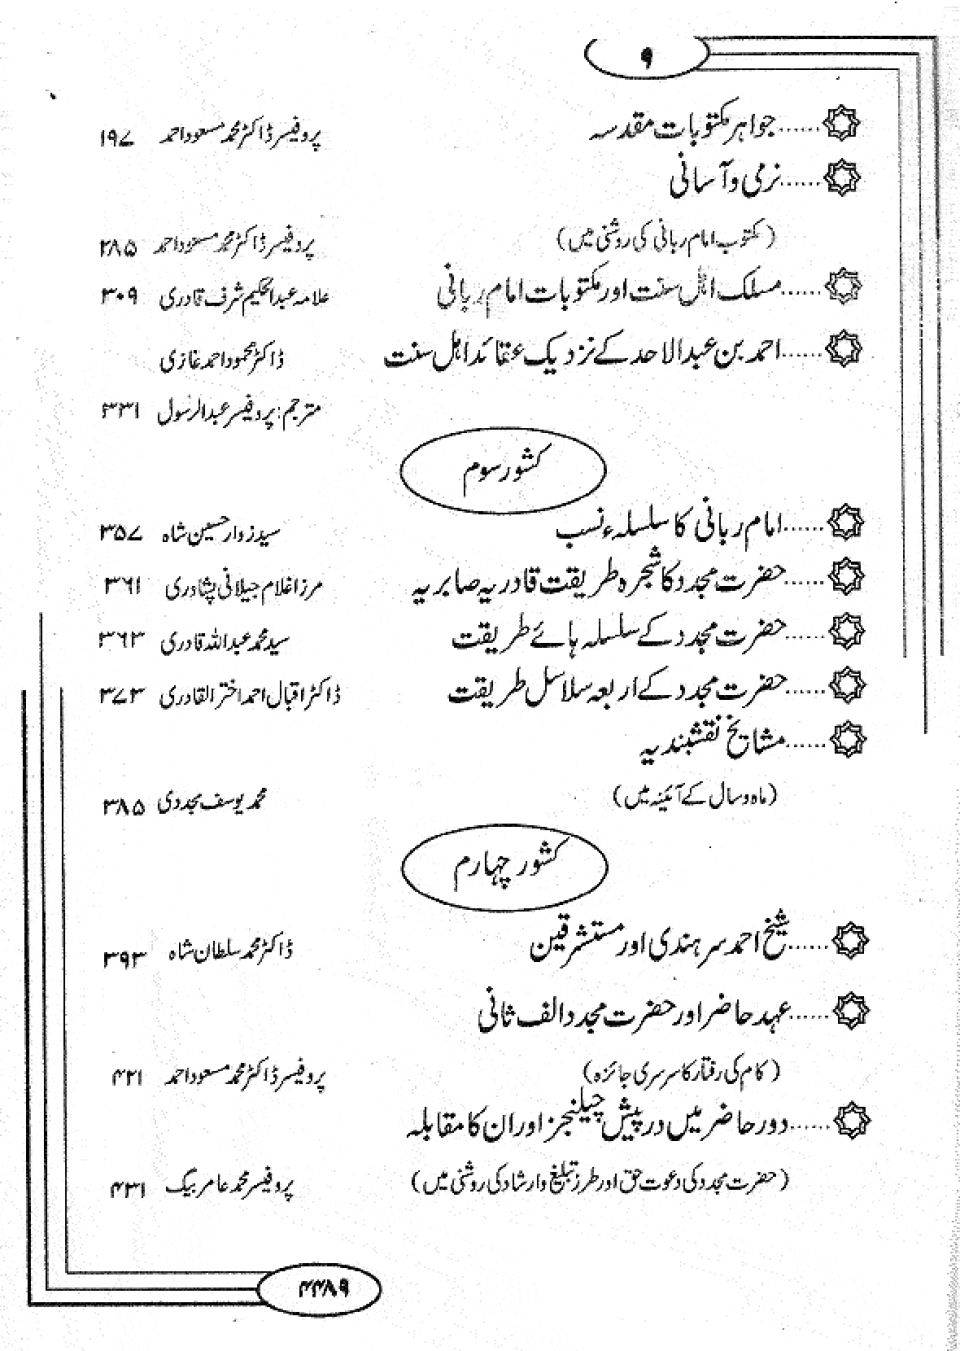 ۹
جواہر مکتوبات مقدسہ...... پروفیسر ڈاکٹر محمد مسعود احمد ۱۹۷
نرمی و آسانی......
(مکتوب امام ربانی کی روشنی میں) پروفیسر ڈاکٹر محمد مسعود احمد ۲۸۵
مسلک اہل سنت اور مکتوبات امام ربانی...... علامہ عبدالحکیم شرف قادری ۳۰۹
احمد بن عبدالاحد کے نزدیک عقائد اہل سنت...... ڈاکٹر محمود احمد غازی
مترجم: پروفیسر عبدالرسول ۳۳۱
کشور سوم
امام ربانی کا سلسلہء نسب...... سید زوار حسین شاہ ۳۵۷
حضرت مجدد کا شجرہ طریقت قادریہ صابریہ...... مرزا غلام جیلانی پشاوری ۳۶۱
حضرت مجدد کے سلسلہ ہائے طریقت...... سید محمد عبداللہ قادری ۳۶۳
حضرت مجدد کے اربعہ سلاسل طریقت...... ڈاکٹر اقبال احمد اختر القادری ۳۷۳
مشایخ نقشبندیہ......
(ماہ و سال کے آئینہ میں) محمد یوسف مجددی ۳۸۵
کشور چہارم
شیخ احمد سرہندی اور مستشرقین...... ڈاکٹر محمد سلطان شاہ ۳۹۳
عہد حاضر اور حضرت مجدد الف ثانی......
(کام کی رفتار کا سرسری جائزہ) پروفیسر ڈاکٹر محمد مسعود احمد ۴۲۱
دور حاضر میں درپیش چیلنجز اور ان کا مقابلہ......
(حضرت مجدد کی دعوت حق اور طرز تبلیغ و ارشاد کی روشنی میں) پروفیسر محمد عامر بیگ ۴۳۱
۴۴۸۹